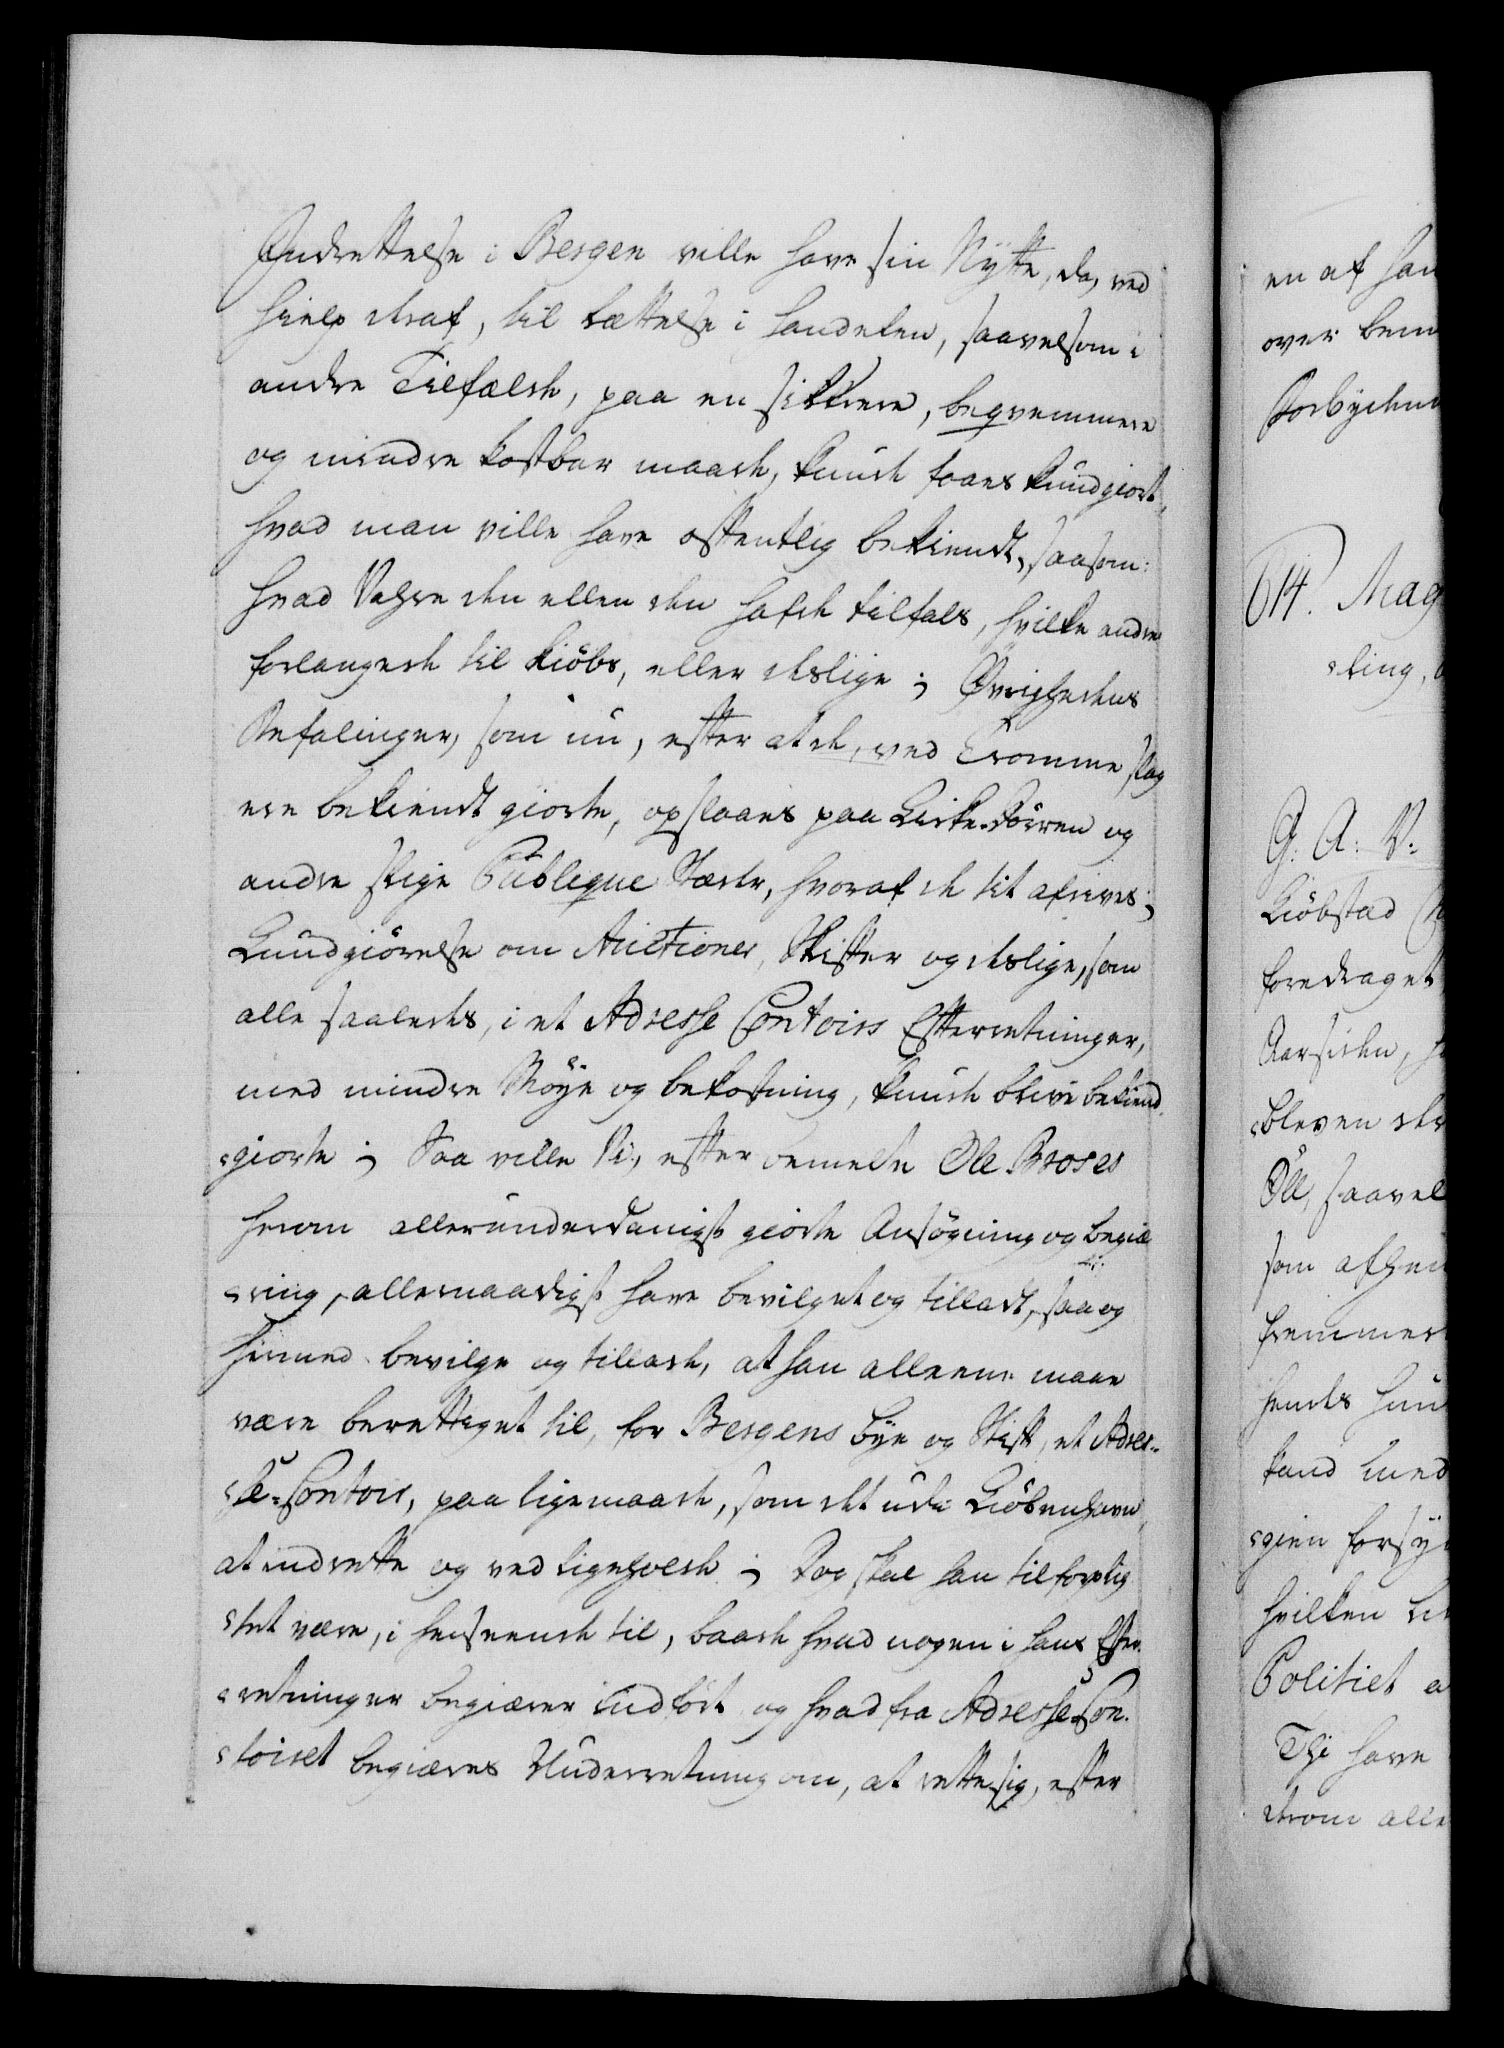 Indrettelse i Bergen ville have sin Nytte, da, ved
hielp deraf, til lættelse i handelen, saavelsom i
andre Tilfælde, paa en sikkrere, beqvemmere
og mindre kostbar maade, kunde faaes kundgiort,
hvad man ville have offentlig bekiendt, saasom:
hvad Vahre den eller den hafde tilfals, hvilke andre
forlangede til kiöbs, eller deslige; Øvrighedens
Befalinger, som nu, efter at de, ved Tromme slag
ere bekiendt giorte, opslaaes paa Kirke-Dörren og
andre slige Publique Stæder, hvoraf de tit afrives;
Kundgiörelse om Auctioner, Skifter og deslige, som
alle saaledes, i et Adresse Contoirs Efterretninger,
med mindre Möye og bekostning, kunde blive bekiend
giorte; Saa ville Vi, efter bemelte Ole Broses
herom allerunderdanigst giorte Ansögning og begiæ
ring, allernaadigst have bevilget og tilladt, saa og
hermed bevilge og tillade, at han alleene maae
være berettiget til, for Bergens bye og Stift, et Adres-
se-Contoir, paa ligemaade, som det udi Kiöbenhavn,
at indrette og ved ligeholde; Dog skal han tilforplig
tet være, i henseende til, baade hvad nogen i hans Efter
retninger begiærer indfört og hvad fra Adresse-Con-
toiret begiæres Underretning om, at rette sig, efter
en af han
over bem
Forbydend
614. Mag
ling,
G: A: V:
Kiöbstad
foredraget
Aarsiden,
bleven der
Öll, saavel
som af
fremmer
hendes
kand med
gien forsy
hvilken
Politiet a
Thi have
derom alle